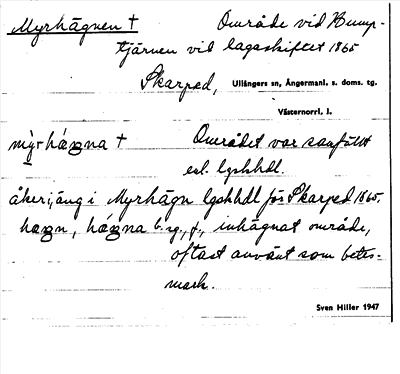 Myrhägnen † Område vid Bump-
tjärnen vid lagaskiftet 1865
Skarped, Ullångers sn, Ångermanl. s. doms. tg.
Västernorrl. l.
Området var samfällt
enl. lgskhdl.
åker i, äng i Myrhägn lgskhdl för Skarped 1865.
inhägnat område,
oftast använt som betes-
mark.
Sven Hiller 1947